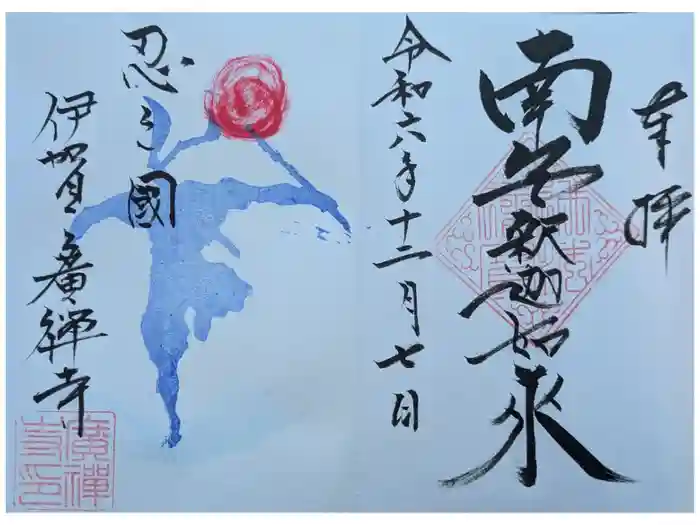 奉拝
南無釈迦如来
令和六年十二月七日
忍之國
伊賀廣禅寺
廣禅
寺印